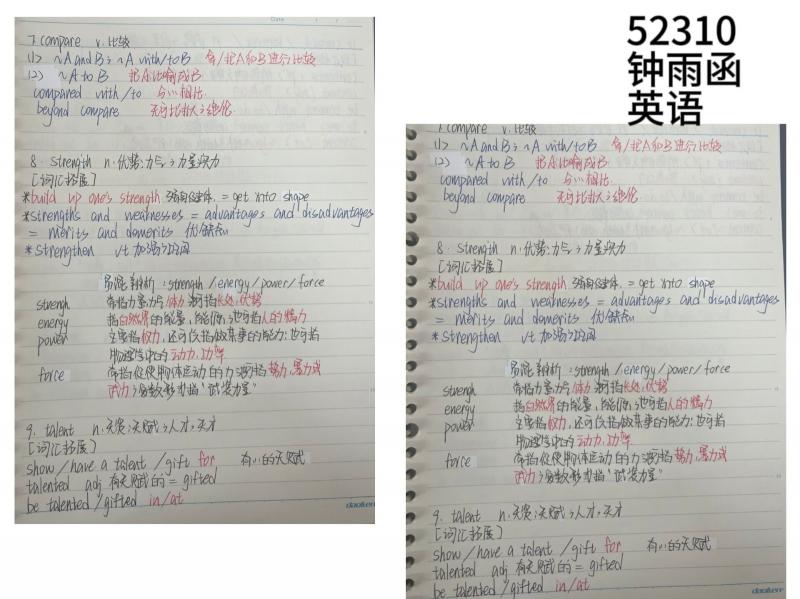 Date
7. compare v. 比较
(1) ~A and B; ~A with/to B 与/把A和B进行比较
(2) ~A to B 把A比喻成B
compared with/to 与…相比
beyond compare 无可比拟;绝伦
8. strength n. 优势;力气;力量;实力
[词汇拓展]
*build up one's strength 强身健体 = get into shape
*strengths and weaknesses = advantages and disadvantages
= merits and demerits 优缺点
*strengthen vt 加强;巩固
易混辨析: strength/energy/power/force
strengh 常指力量,力气,体力,还可指长处,优势
energy 指自然界的能量,能源;也可指人的精力
power 主要指权力,还可以指做某事的能力;也可指
物理学中的动力,功率
force 常指促使物体运动的力;还指势力,暴力或
武力;复数形式指"武装力量"
9. talent n. 天资;天赋;人才,天才
[词汇拓展]
show/have a talent/gift for 有…的天赋
talented adj 有天赋的 = gifted
be talented/gifted in/at
daolen
52310
钟雨函
英语
7. compare v. 比较
(1) ~A and B; ~A with/to B 与/把A和B进行比较
(2) ~A to B 把A比喻成B
compared with/to 与…相比
beyond compare 无可比拟;绝伦
8. strength n. 优势;力气;力量;实力
[词汇拓展]
*build up one's strength 强身健体 = get into shape
*strengths and weaknesses = advantages and disadvantages
= merits and demerits 优缺点
*strengthen vt 加强;巩固
易混辨析: strength/energy/power/force
strengh 常指力量,力气,体力,还可指长处,优势
energy 指自然界的能量,能源;也可指人的精力
power 主要指权力,还可以指做某事的能力;也可指
物理学中的动力,功率
force 常指促使物体运动的力;还指势力,暴力或
武力;复数形式指"武装力量"
9. talent n. 天资;天赋;人才,天才
[词汇拓展]
show/have a talent/gift for 有…的天赋
talented adj 有天赋的 = gifted
be talented/gifted in/at
daolen